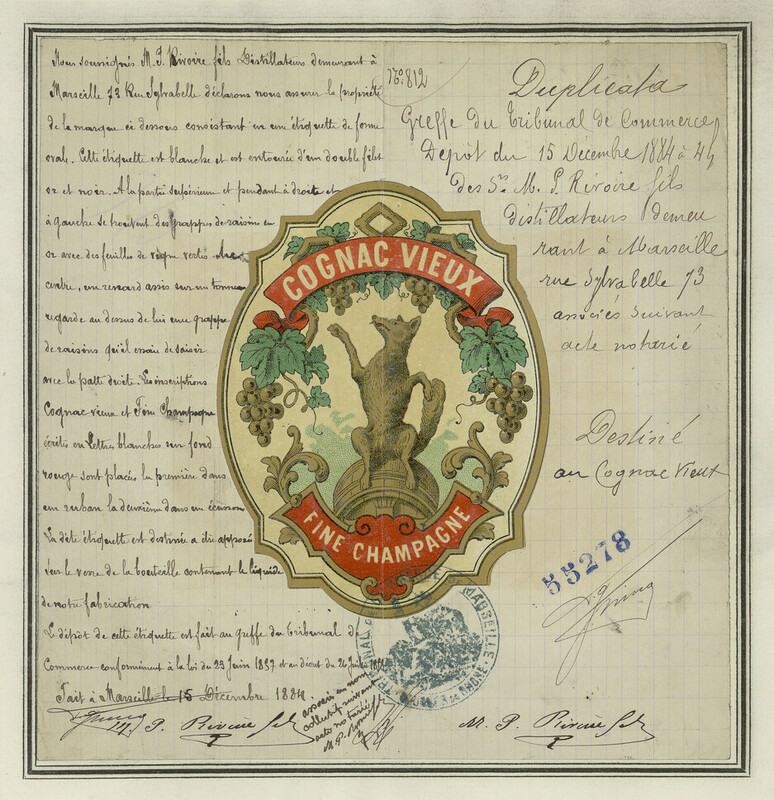 Nous soussignés M. P. Rivoire fils Distillateurs demeurant à
Marseille 73 Rue Sylvabelle déclarons nous assurer la propriété
de la marque ci dessous consistant en une étiquette de forme
ovale. Cette étiquette est blanche et est entourée d'un double filet
or et noir. A la partie supérieure et pendant à droite et
à gauche se trouvent des grappes de raisins en
or avec des feuilles de vigne vertes. Au
centre, un renard assis sur un tonneau
regarde au dessus de lui une grappe
de raisins qu'il essaie de saisir
avec la patte droite. Les inscriptions
Cognac vieux et Fine Champagne
écrites en lettres blanches sur fond
rouge sont placées la première dans
un ruban la deuxième dans un écusson
La dite étiquette est destinée à être apposée
sur le verre de la bouteille contenant le liquide
de notre fabrication
Le dépôt de cette étiquette est fait au greffe du Tribunal de
Commerce conformément à la loi du 23 Juin 1857 et au décret du 26 Juillet
Fait à Marseille le 15 Décembre 1884
M. P. Rivoire fils
associés en nom
collectif suivant
acte notarié
M. P. Rivoire fils
No. 812
Duplicata
Greffe du Tribunal de Commerce
Dépôt du 15 Décembre 1884 à 4h
des Srs M. P. Rivoire fils
distillateurs demeu
rant à Marseille
rue Sylvabelle 73
associés suivant
acte notarié
Destiné
au Cognac Vieux
55278
M. P. Rivoire fils
COGNAC VIEUX
FINE CHAMPAGNE
MARSEILLE